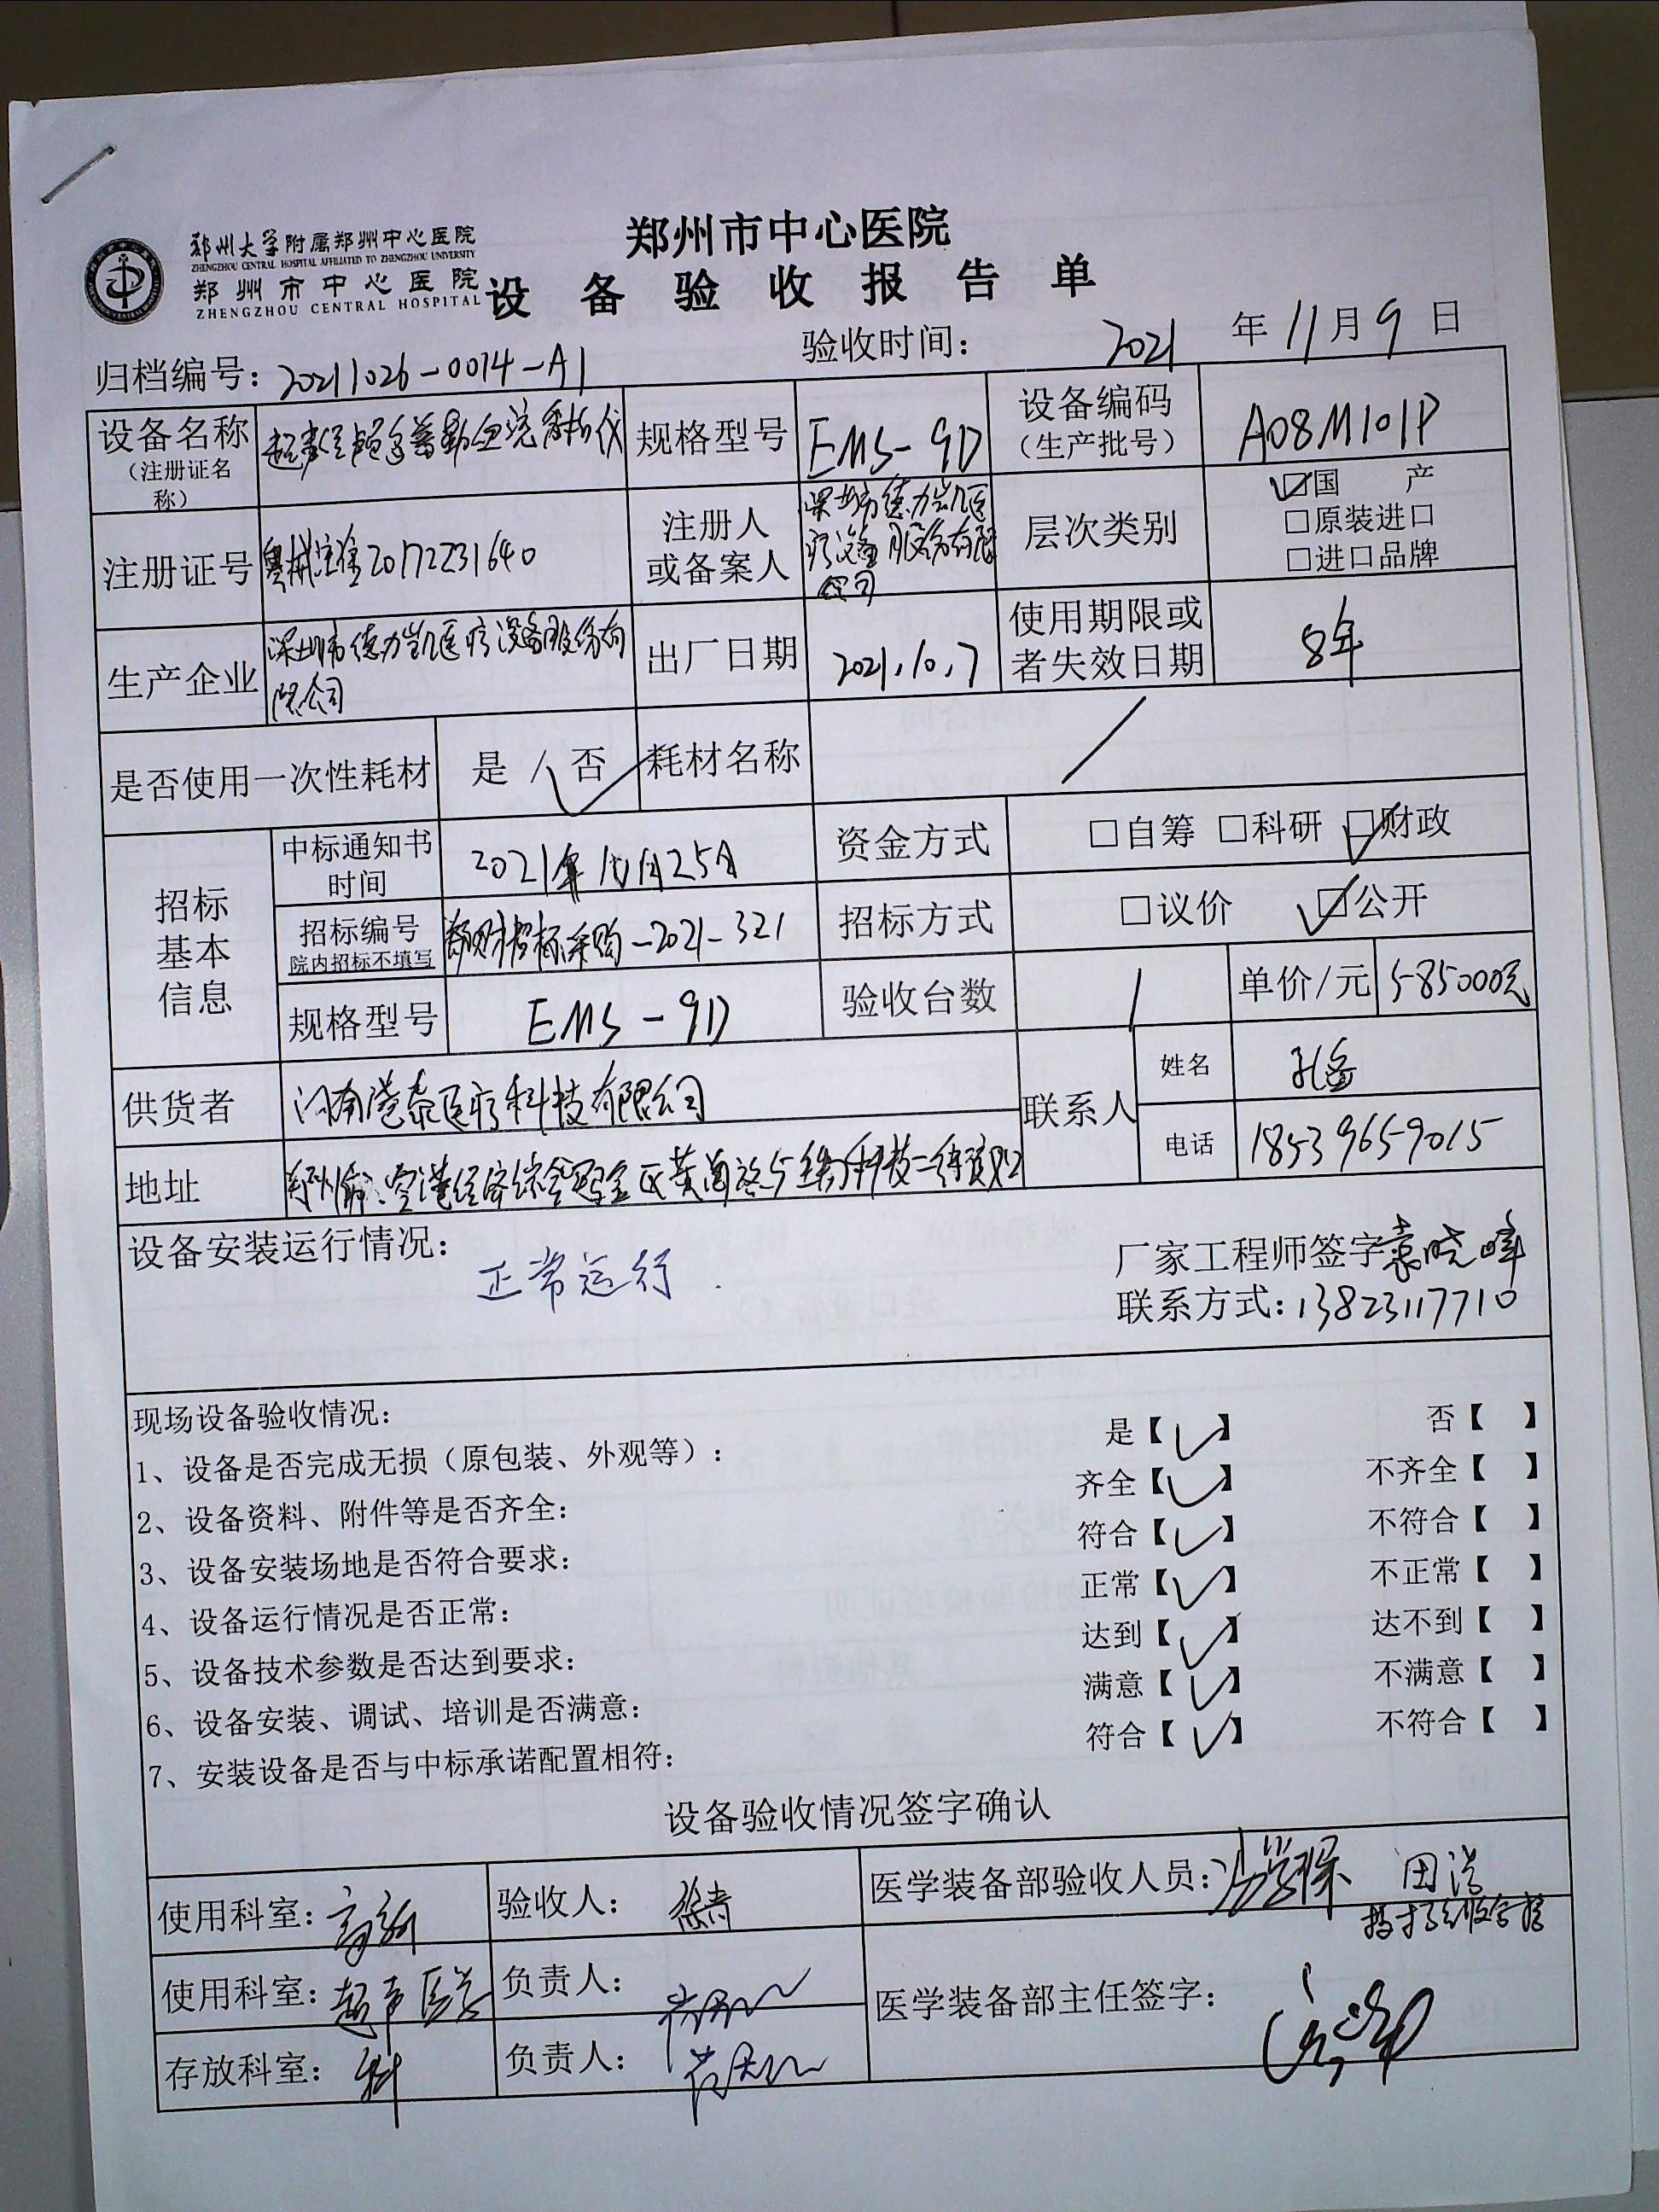 郑州大学附属郑州中心医院
ZHENGZHOU CENTRAL HOSPITAL AFFILIATED TO ZHENGZHOU UNIVERSITY
郑州市中心医院
ZHENGZHOU CENTRAL HOSPITAL
郑州市中心医院
设备验收报告单
归档编号：20211026-0074-A1 验收时间： 2021 年 11 月 9 日
设备名称（注册证名称） 超声经颅多普勒血流分析仪 规格型号 EMS-9D 设备编码（生产批号） A08M101P
注册证号 粤械注准20172231640 注册人或备案人 深圳市德力凯医疗设备股份有限公司 层次类别 ☑国 产
□原装进口
□进口品牌
生产企业 深圳市德力凯医疗设备股份有限公司 出厂日期 2021.10.7 使用期限或者失效日期 8年
是否使用一次性耗材 是 / 否 ✓ 耗材名称 /
招标基本信息
中标通知书时间 2021年10月25日 资金方式 □自筹 □科研 ☑财政
招标编号 院内招标不填写 郑财招标采购-2021-321 招标方式 □议价 ☑公开
规格型号 EMS-9D 验收台数 1 单价/元 585000元
供货者 河南港泰医疗科技有限公司 联系人 姓名 孔
地址 郑州 空港经济综合实验区 电话 18539659015
设备安装运行情况： 正常运行 厂家工程师签字 袁晓峰
联系方式：13823117710
现场设备验收情况：
1、设备是否完成无损（原包装、外观等）： 是【✓】 否【 】
2、设备资料、附件等是否齐全： 齐全【✓】 不齐全【 】
3、设备安装场地是否符合要求： 符合【✓】 不符合【 】
4、设备运行情况是否正常： 正常【✓】 不正常【 】
5、设备技术参数是否达到要求： 达到【✓】 达不到【 】
6、设备安装、调试、培训是否满意： 满意【✓】 不满意【 】
7、安装设备是否与中标承诺配置相符： 符合【✓】 不符合【 】
设备验收情况签字确认
使用科室：高新 验收人： 医学装备部验收人员：
使用科室：超声医学 负责人： 医学装备部主任签字：
存放科室：科 负责人：